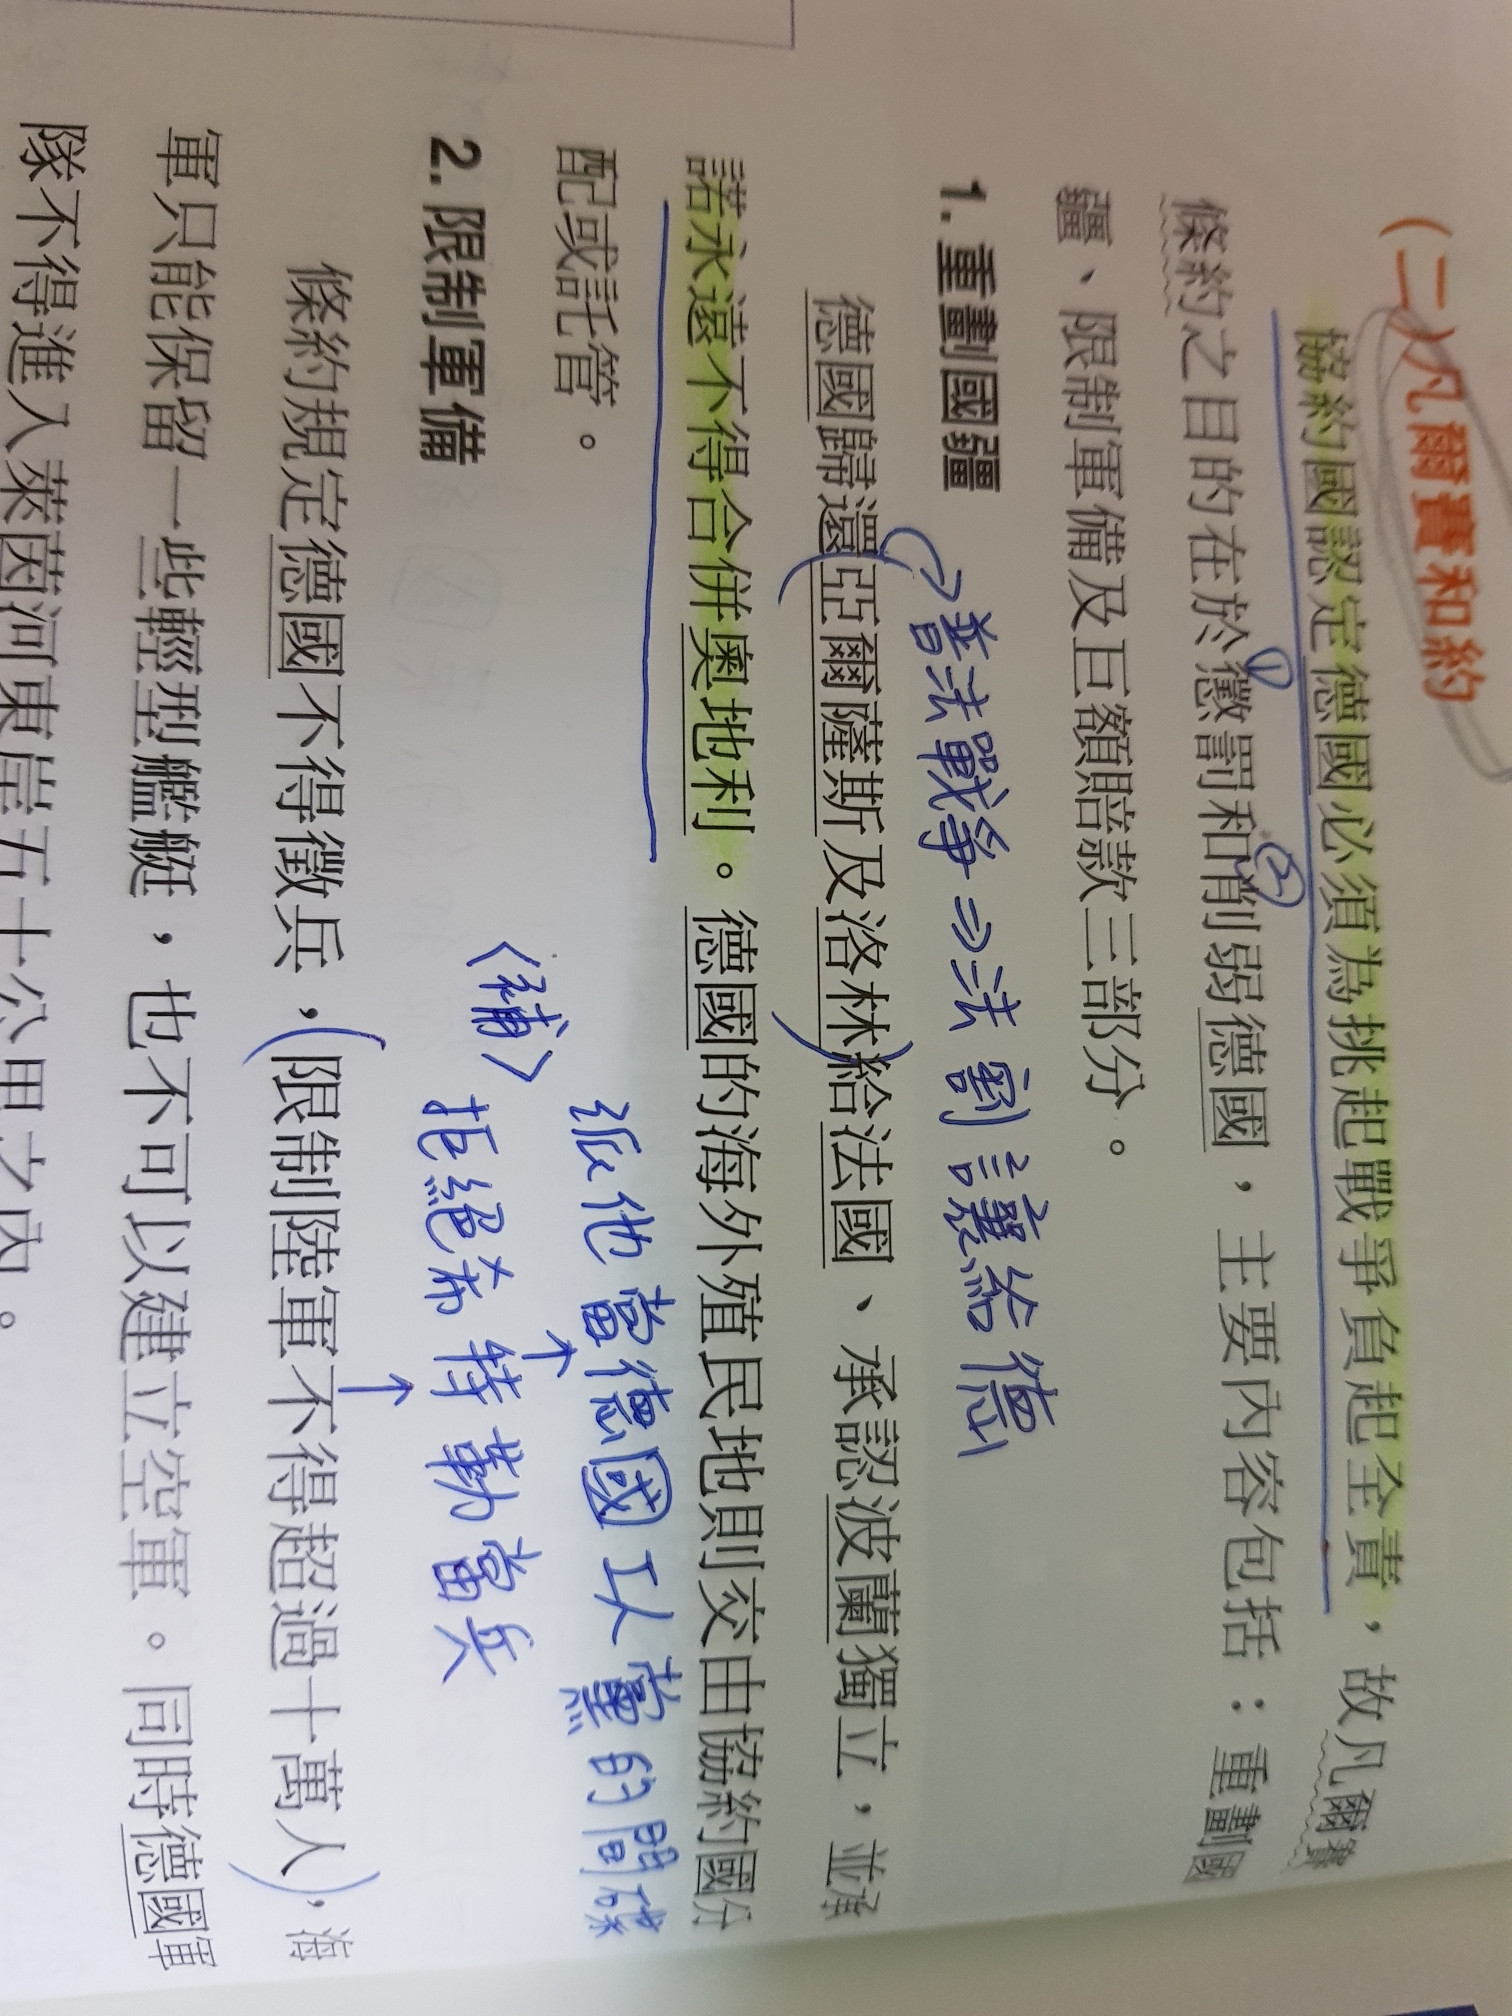 (二)凡爾賽和約
協約國認定德國必須為挑起戰爭負起全責，故凡爾賽
條約之目的在於①懲罰和②削弱德國，主要內容包括：重劃國
疆、限制軍備及巨額賠款三部分。
1. 重劃國疆
普法戰爭⇒法割讓給德
德國歸還(亞爾薩斯及洛林)給法國、承認波蘭獨立，並承
諾永遠不得合併奧地利。德國的海外殖民地則交由協約國分
配或託管。
派他當德國工人黨的間諜
↑
2. 限制軍備
〈補〉拒絕希特勒當兵
↑
條約規定德國不得徵兵，(限制陸軍不得超過十萬人)，海
軍只能保留一些輕型艦艇，也不可以建立空軍。同時德國軍
隊不得進入萊茵河東岸五十公里之內。